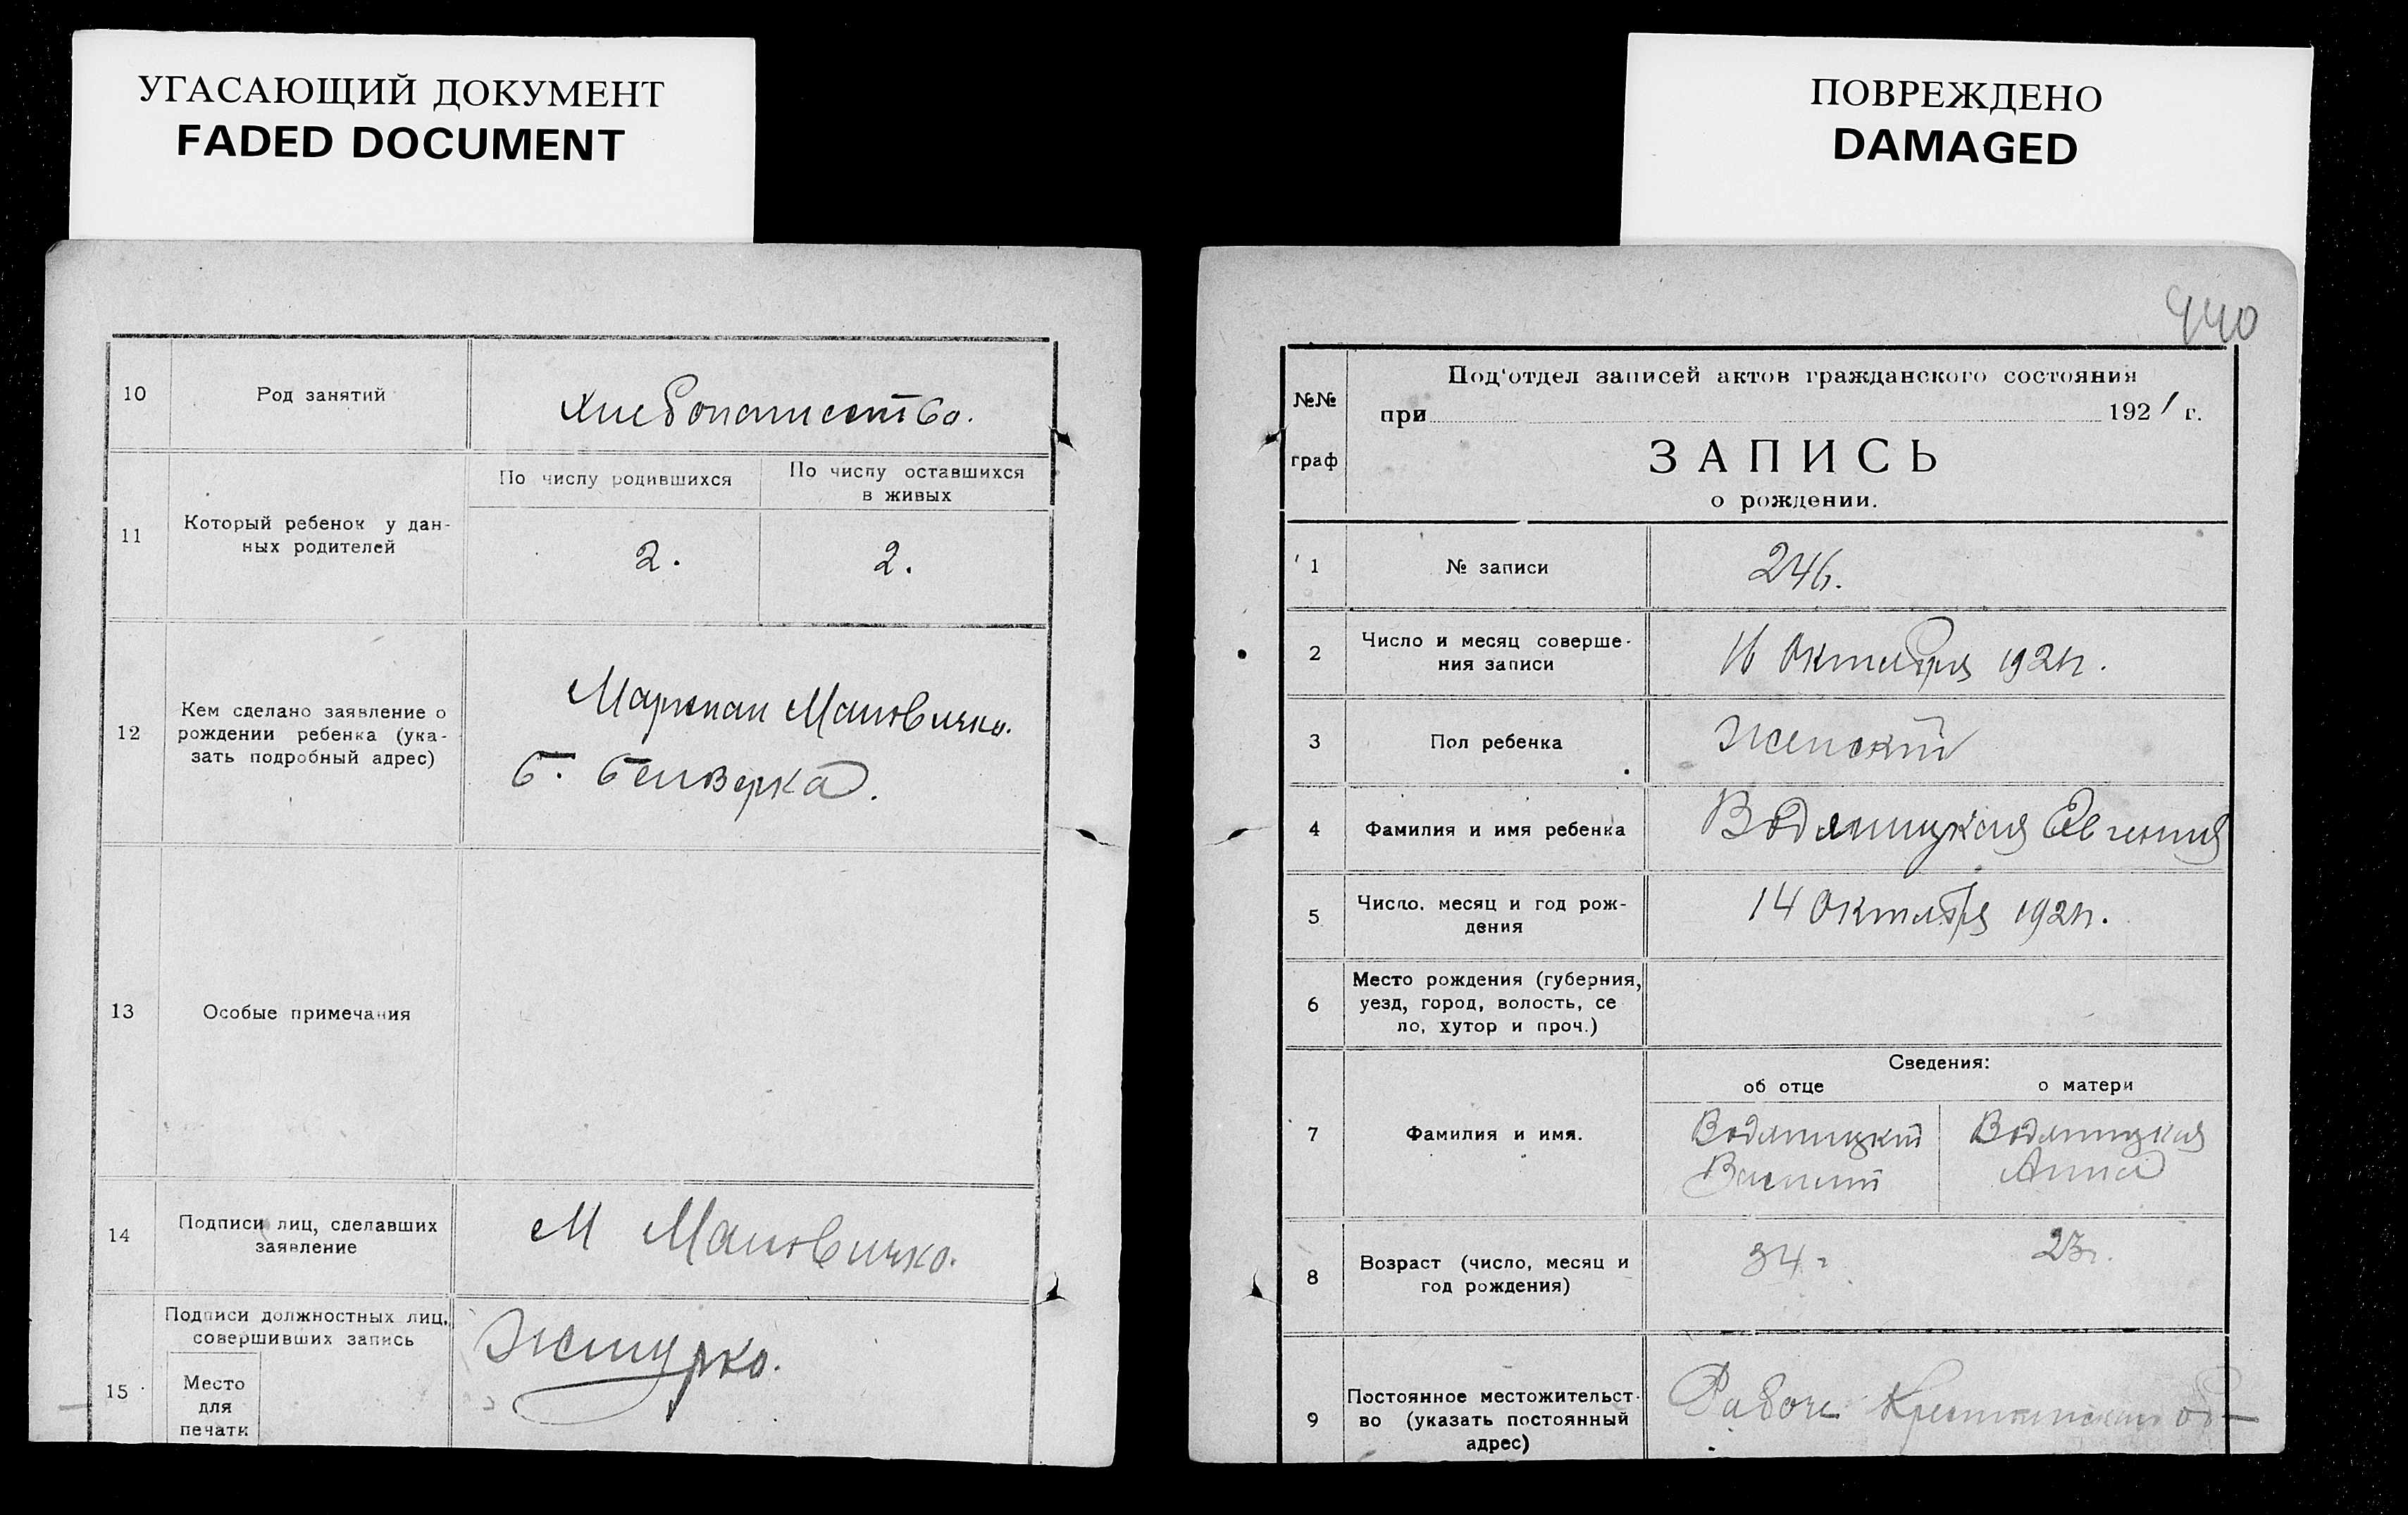 УГАСАЮЩИЙ ДОКУМЕНТ
FADED DOCUMENT
10
Род занятий
Хлебопашество.
11
Который ребенок у дан-
ных родителей
По числу родившихся
По числу оставшихся
в живых
2.
2.
12
Кем сделано заявление о
рождении ребенка (ука-
зать подробный адрес)
13
Особые примечания
14
Подписи лиц, сделавших
заявление
М
15
Подписи должностных лиц,
совершивших запись
Место
для
печати
ПОВРЕЖДЕНО
DAMAGED
440
№№
граф
Под'отдел записей актов гражданского состояния
при 1921 г.
ЗАПИСЬ
о рождении.
1
№ записи
246.
2
Число и месяц соверше-
ния записи
16 Октября 1921г.
3
Пол ребенка
Женский
4
Фамилия и имя ребенка
Водяницкая Евгения
5
Число, месяц и год рож-
дения
14 Октября 1921г.
6
Место рождения (губерния,
уезд, город, волость, се
ло, хутор и проч.)
Сведения:
об отце
о матери
7
Фамилия и имя.
Водяницкий
Василий
Водяницкая
Анна
8
Возраст (число, месяц и
год рождения)
34г
23г.
9
Постоянное местожительст-
во (указать постоянный
адрес)
Рабоче Крестьянская